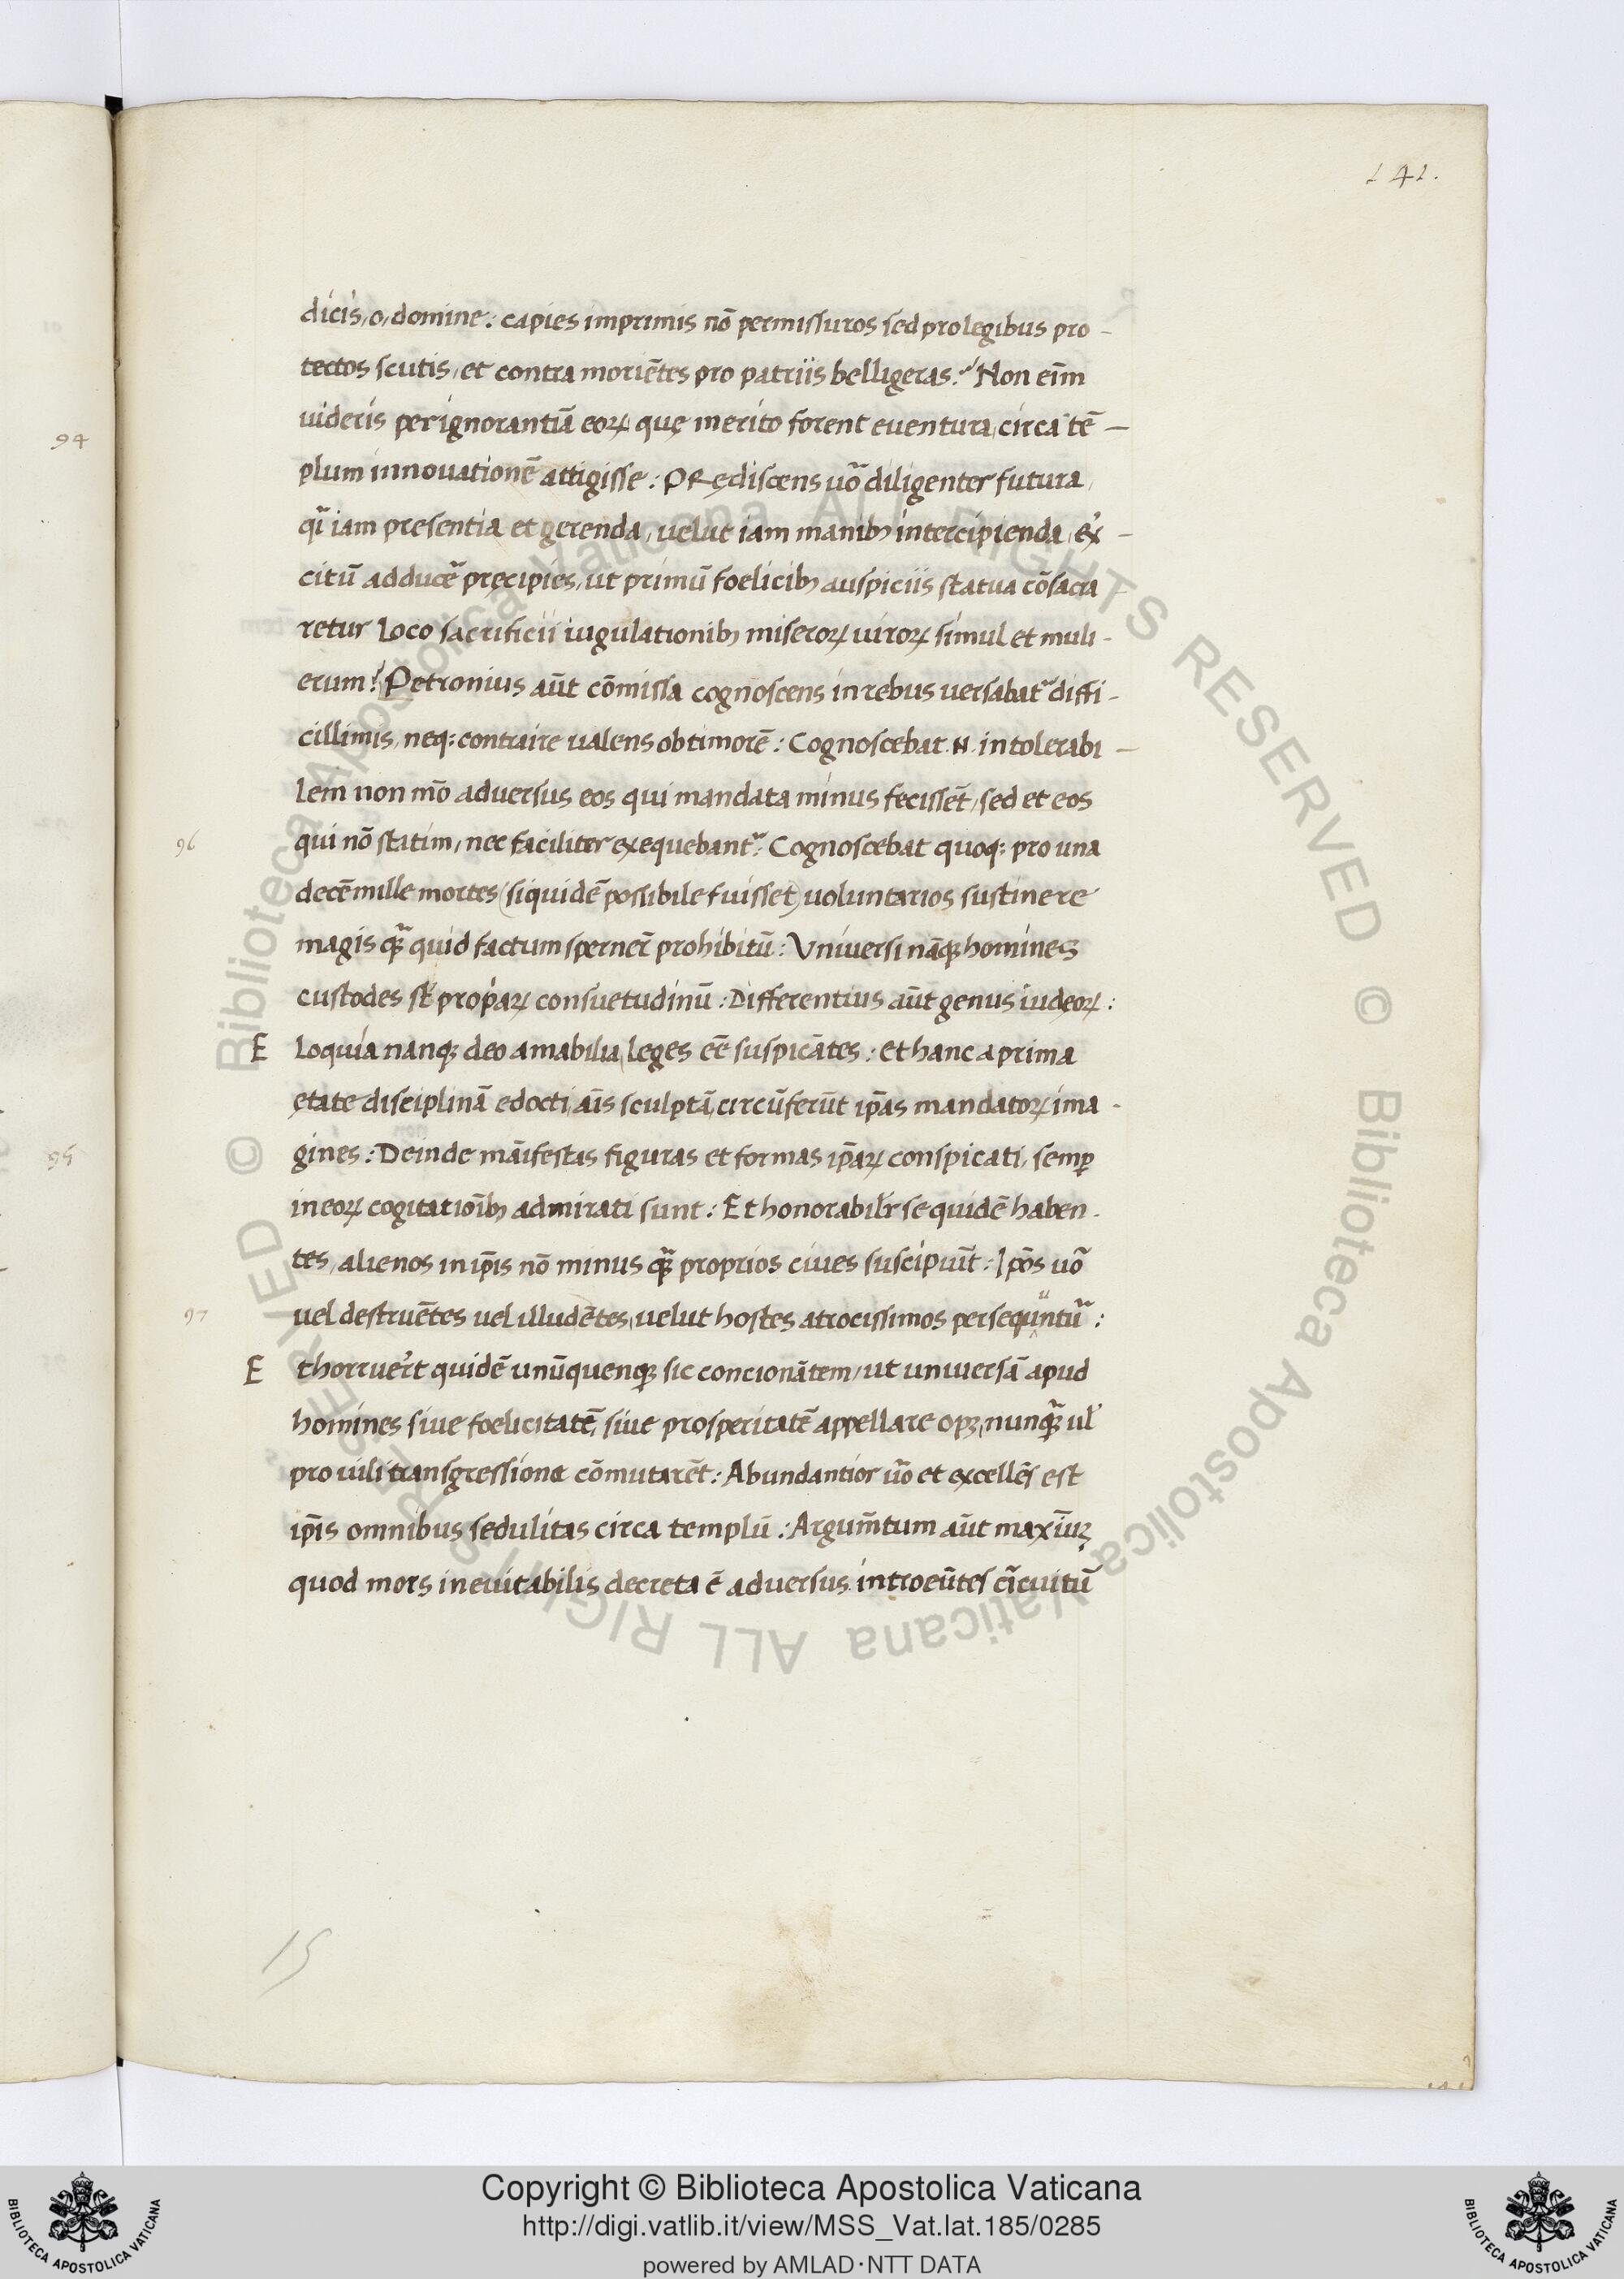 141.
dicis, o, domine: capies imprimis nō permissuros sed pro legibus pro-
tectos scutis, et contra moriētes pro patriis belligeras? Non eīm
uideris per ignorantiā eoꝝ que merito forent euentura, circa tē-
94
plum innovationē attigisse: PRędiscens uoᷓ diligenter futura,
qᷓi iam presentia et gerenda, velut iam manibꝫ intercipienda, ex̓-
citū adduceᷓ pręcipies, ut primū foelicibꝫ auspiciis statua cōsacra
retur loco sacrificii iugulationibꝫ miseroꝝ uiroꝝ simul et muli-
erum? Petronius aūt cōmissa cognoscens in rebus versabat᷑ diffi-
cillimis, neqꝫ contraire ualens ob timorē: Cognoscebat .N. intolerabi-
lem non mō adversus eos qui mandata minus fecissēt, sed et eos
96
qui nō statim, nec faciliter exequebant᷑: Cognoscebat quoqꝫ pro una
decē mille mortes (siquidē possibile fuisset) voluntarios sustinere
magis qꝫᷓ quid factum sperner̄ prohibitū: Vniversi nāqꝫ homines
custodes st̄ propiaꝝ consuetudinū: Differentius aūt genus iudęoꝝ:
E loquia nanqꝫ deo amabilia, leges eē suspicātes: et hanc a prima
ętate disciplinā edocti, aīs sculptā, circūferūt ip̄as mandatoꝝ ima-
95
gines: Deinde māifestas figuras et formas ip̄aꝝ conspicati, semꝑ
in eoꝝ cogitatiōibꝫ admirati sunt: Et honorabilr̄ se quidē haben-
tes, alienos in ip̄is nō minus qꝫᷓ proprios ciues suscipiūt: Ip̄os uoᷓ
97
uel destruētes uel illudētes, velut hostes atrocissimos persequūntu᷑:
E t horruer̄t quidē unūquenqꝫ sic concionātem, ut universā apud
homines siue foelicitatē, siue prosperitatē appellare opꝫ, nunqꝫᷓ ul̓
pro uili transgressione cōmutarēt: Abundantior uoᷓ et excellēs est
ip̄is omnibus sedulitas circa templū: Argum̄tum aūt maxīuꝫ
quod mors ineuitabilis decreta ē adversus introeūtes cir̄cuitū
15
Copyright © Biblioteca Apostolica Vaticana
http://digi.vatlib.it/view/MSS_Vat.lat.185/0285
powered by AMLAD·NTT DATA
BIBLIOTECA APOSTOLICA VATICANA
BIBLIOTECA APOSTOLICA VATICANA
© Biblioteca Apostolica Vaticana ALL RIGHTS RESERVED © Biblioteca Apostolica Vaticana ALL RIGHTS RESERVED